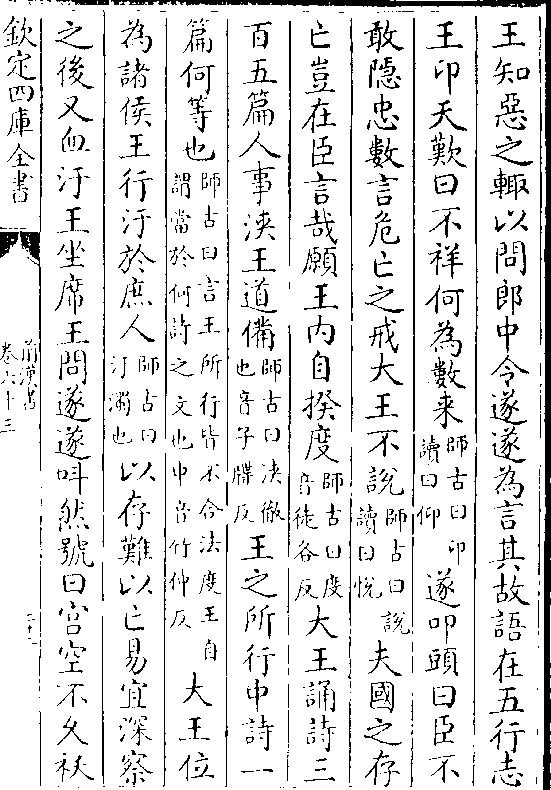 王知惡之輙以問郎中令遂遂為言其故語在五行志
王卬天歎曰不祥何為數来師古曰卬讀曰仰遂叩頭曰臣不
敢隱忠數言危亡之戒大王不說師古曰說讀曰悅夫國之存
亡豈在臣言哉願王内自揆度師古曰度音徒各反大王誦詩三
百五篇人事浹王道備師古曰浹徹也音子牒反王之所行中詩一
篇何等也師古曰言王所行皆不合法度王自謂當於何詩之文也中音竹仲反大王位
為諸侯王行汙於庶人師古曰汙濁也以存難以亡易宜深察
之後又血汙王坐席王問遂遂叫然號曰宫空不久祅
欽定四庫全書
前漢書
卷六十三